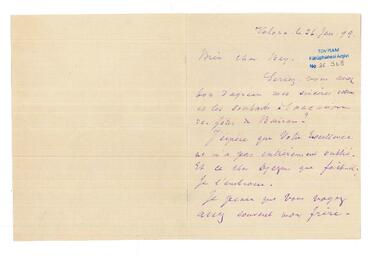 le 26 Jan. 99.
TDV İSAM
Kütüphanesi Arşivi
No 2E.368
Mon cher Bey.
Serez vous assez
bon d'agréer mes sincères vœux
et les souhaits à l'occasion
des fêtes de Baïram?
J'espère que Votre Excellence
ne m'a pas entièrement oublié.
Et ce cher que fait-il,
Je l'embrasse.
Je pense que vous voyez
assez souvent mon frère.